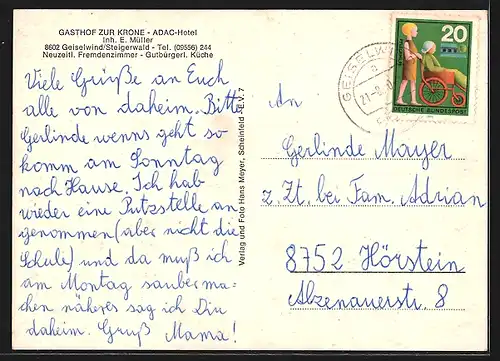 GASTHOF ZUR KRONE - ADAC-Hotel
Inh. E. Müller
8602 Geiselwind/Steigerwald - Tel. (09556) 244
Neuzeitl. Fremdenzimmer - Gutbürgerl. Küche
Viele Grüße an Euch
alle von daheim. Bitte
Gerlinde wenns geht so
komm am Sonntag
nach Hause. Ich hab
wieder eine Putzstelle an
genommen (aber nicht die
Schule) und da muß ich
am Montag sauber ma-
chen näheres sag ich Dir
daheim. Gruß Mama!
Verlag und Foto Hans Meyer, Scheinfeld
GEISELW
21.-8.
20
DEUTSCHE BUNDESPOST
An
Gerlinde Mayer
z. Zt. bei Fam. Adrian
8752 Hörstein
Alzenauerstr. 8